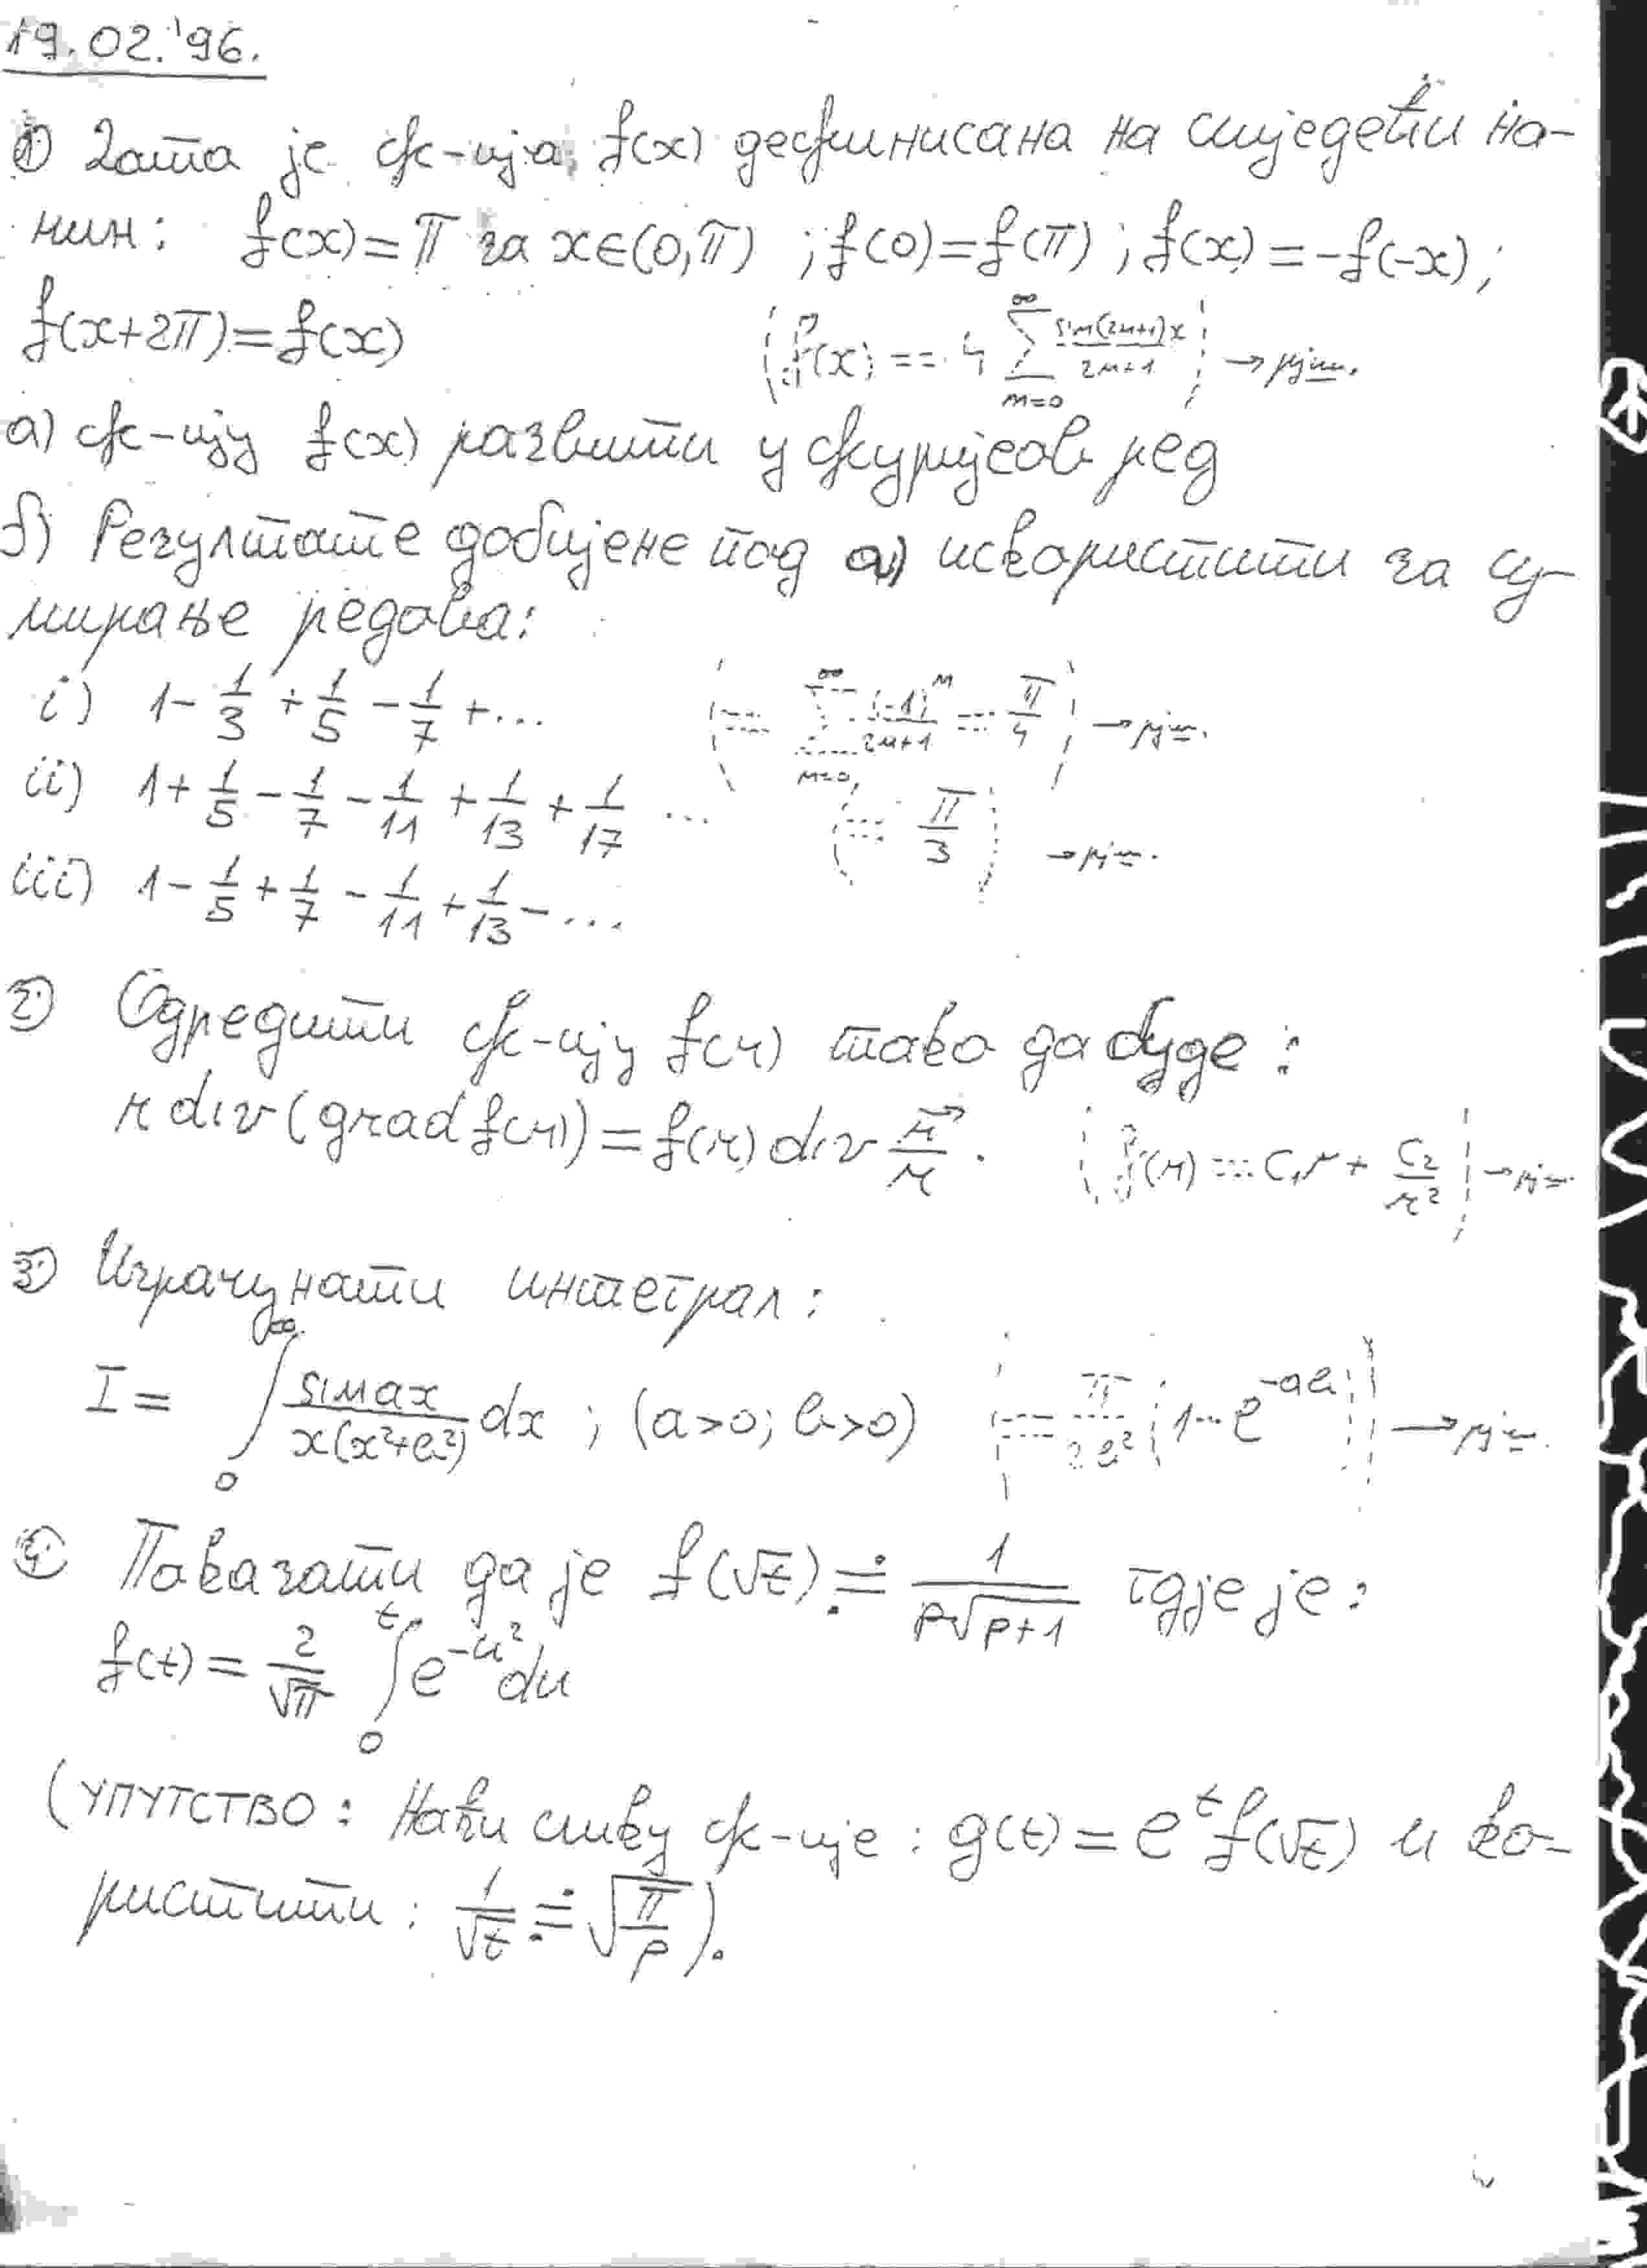 19.02.'96.
1) Дата је ф-ија f(x) дефинисана на слиједећи на-
чин: f(x) = π за x∈(0,π) ; f(0) = f(π) ; f(x) = -f(-x) ;
f(x+2π) = f(x) (f(x) = 4 ∑_{n=0}^{∞} sin(2n+1)x / (2n+1)) → рјеш.
а) ф-ију f(x) развити у фуријеов ред
б) Резултате добијене под а) искористити за су-
мирање редова:
i) 1 - 1/3 + 1/5 - 1/7 + ... (= ∑_{n=0}^{∞} (-1)^n / (2n+1) = π/4) → рјеш.
ii) 1 + 1/5 - 1/7 - 1/11 + 1/13 + 1/17 ... (= π/3) → рјеш.
iii) 1 - 1/5 + 1/7 - 1/11 + 1/13 - ...
2) Одредити ф-ију f(r) тако да буде :
r div(grad f(r)) = f(r) div r⃗/r . (f(r) = C₁r + C₂/r²) → рјеш.
3) Израчунати интеграл :
I = ∫_0^∞ sin ax / (x(x²+b²)) dx ; (a>0; b>0) (= π/2b² (1 - e^{-ab})) → рјеш.
4) Показати да је f(√t) ≓ 1/(p√(p+1)) гдје је :
f(t) = 2/√π ∫_0^t e^{-u²} du
(УПУТСТВО : Наћи слику ф-ије : g(t) = e^t f(√t) и ко-
ристити : 1/√t ≓ √(π/p) ).